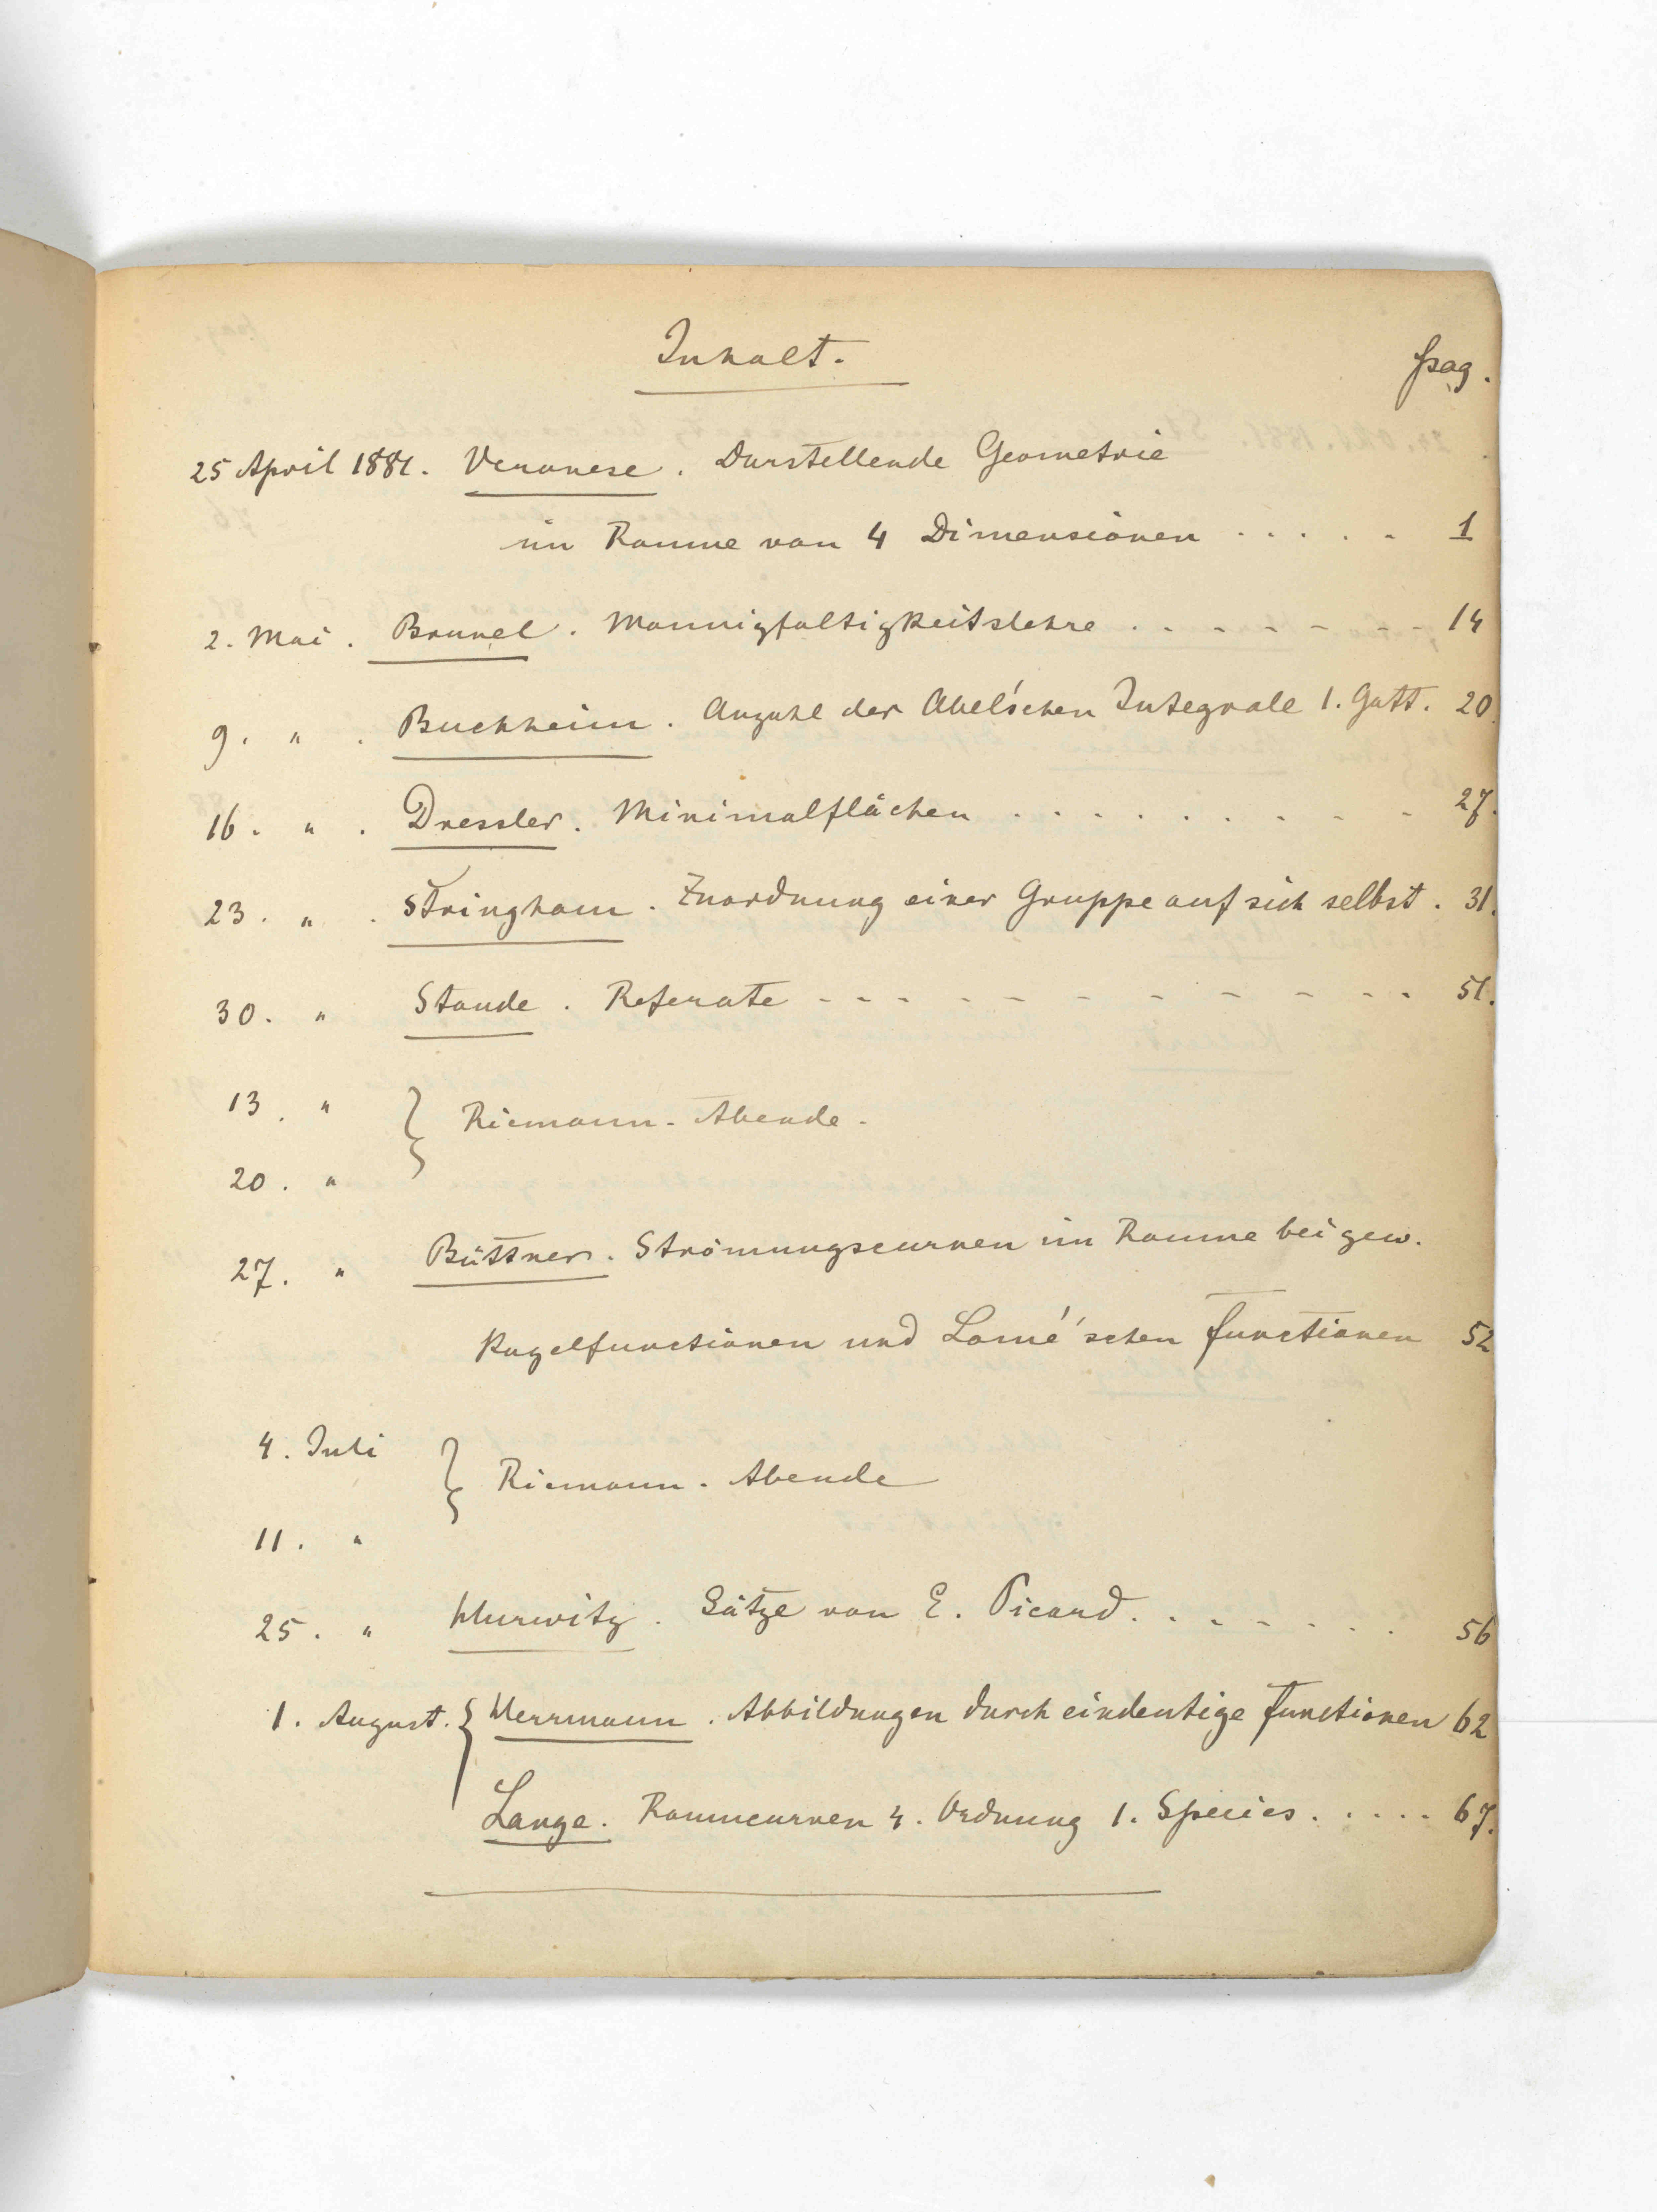 Inhalt.
pag.
25 April 1881. Veronese. Darstellende Geometrie
im Raume von 4 Dimensionen . . . . . 1
2. Mai. Brunel. Mannigfaltigkeitslehre . - - - - - - - 14
9. " . Buchheim. Anzahl der Abel'schen Integrale 1. Gatt. 20
16. " . Dressler. Minimalflächen . . . . . . . . . . 27.
23. " . Stringham. Zuordnung einer Gruppe auf sich selbst. 31.
30. " Staude. Referate - - - - - - - - - - - - 51.
13. " } Riemann-Abende.
20. "
27. " Büttner. Strömungscurven im Raume bei gew.
Kugelfunctionen und Lamé'schen Functionen 52
4. Juli } Riemann-Abende
11. "
25. " Hurwitz. Sätze von E. Picard. . . . . . . 56
1. August. { Herrmann. Abbildungen durch eindeutige Functionen 62
Lange. Raumcurven 4. Ordnung 1. Species. . . . . 67.